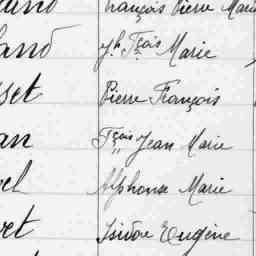 François Pierre Marie
and Jh Fçois Marie
set Pierre François
an Fçois Jean Marie
el Alphonse Marie
vet Isidore Eugène